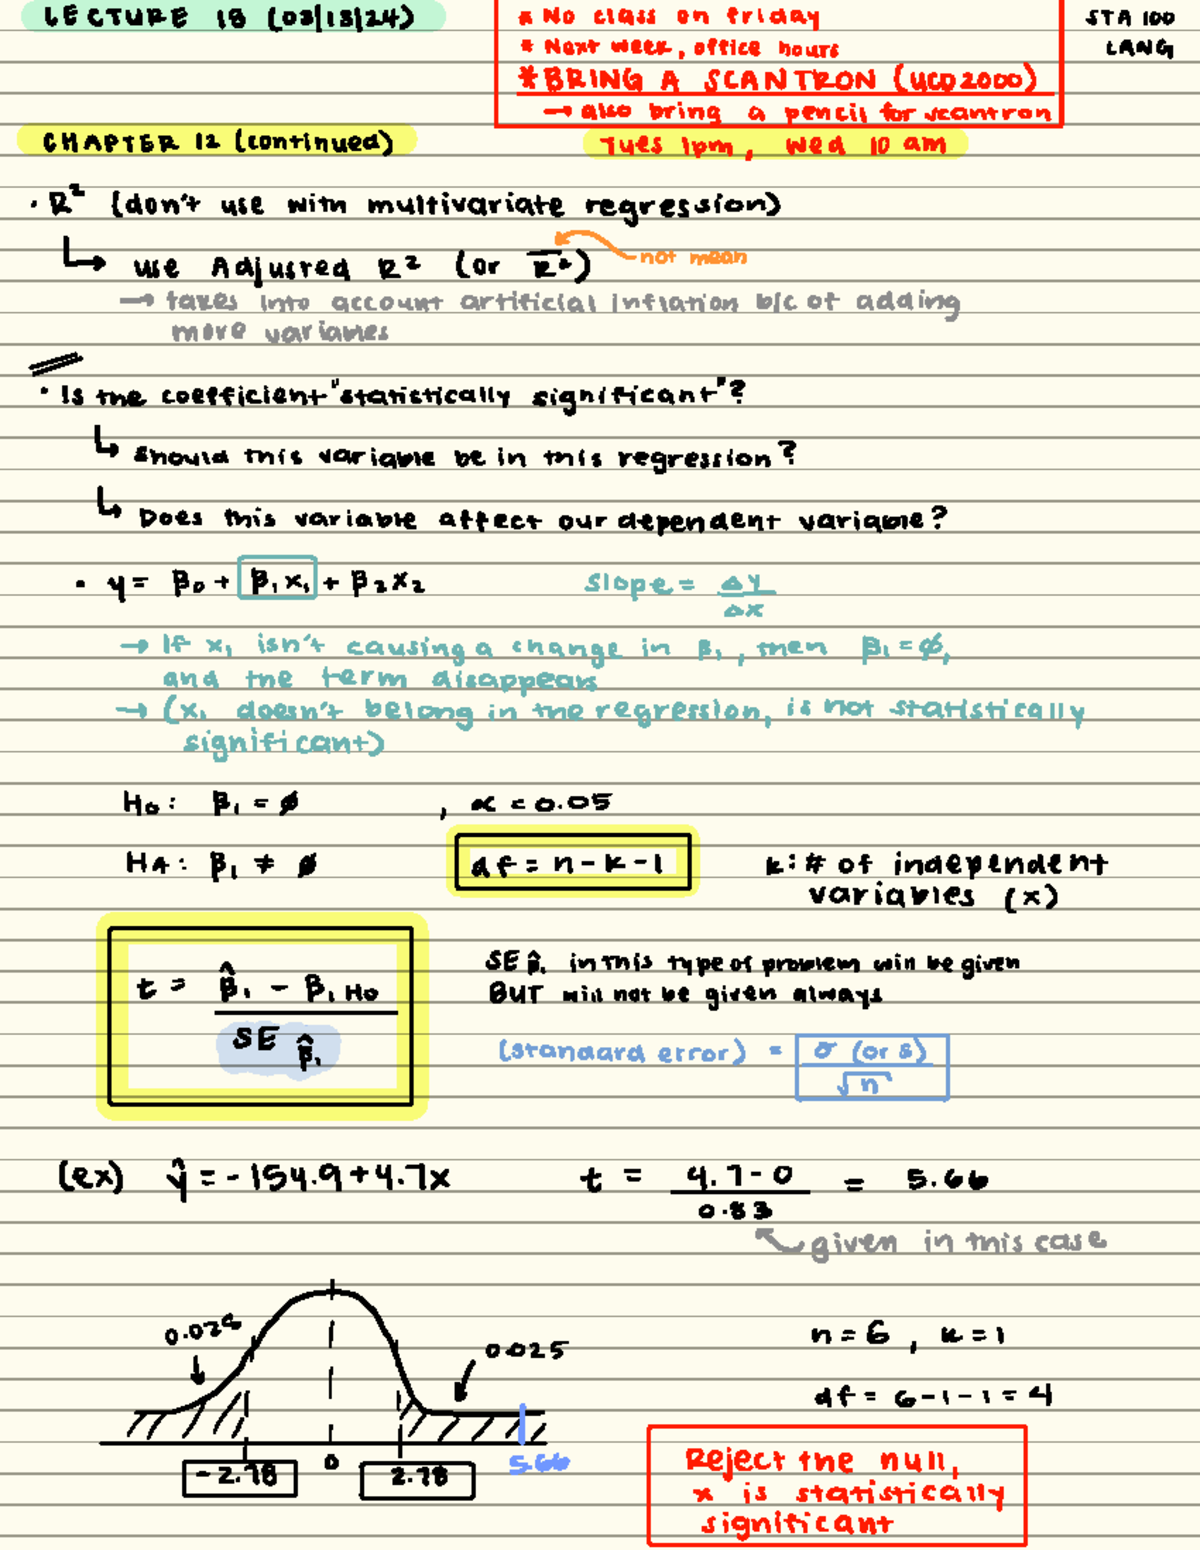 LECTURE 18 (03/13/24)
* No class on friday
* Next week, office hours
*BRING A SCANTRON (UCD2000)
→ also bring a pencil for scantron
STA 100
LANG
CHAPTER 12 (continued)
Tues 1pm, Wed 10 am
· R² (don't use with multivariate regression)
↳ use Adjusted R² (or R̄²)
not mean
→ takes into account artificial inflation b/c of adding
more variables
· Is the coefficient "statistically significant"?
↳ should this variable be in this regression?
↳ Does this variable affect our dependent variable?
· y = β₀ + β₁x₁ + β₂x₂
slope = Δy/Δx
→ If x₁ isn't causing a change in β₁, then β₁ = ∅,
and the term disappears
→ (x₁ doesn't belong in the regression, is not statistically
significant)
H₀: β₁ = ∅ , α = 0.05
HA: β₁ ≠ ∅
df = n - k - 1
k: # of independent
variables (x)
t = (β̂₁ - β₁ H₀) / SE β̂₁
SE β̂₁ in this type of problem will be given
BUT will not be given always
(standard error) = σ (or s) / √n
(ex) ŷ = -154.9+4.7x
t = (4.7-0) / 0.83 = 5.66
given in this case
0.025
0.025
n = 6 , k = 1
df = 6-1-1 = 4
-2.78
0
2.78
5.66
Reject the null,
x is statistically
significant